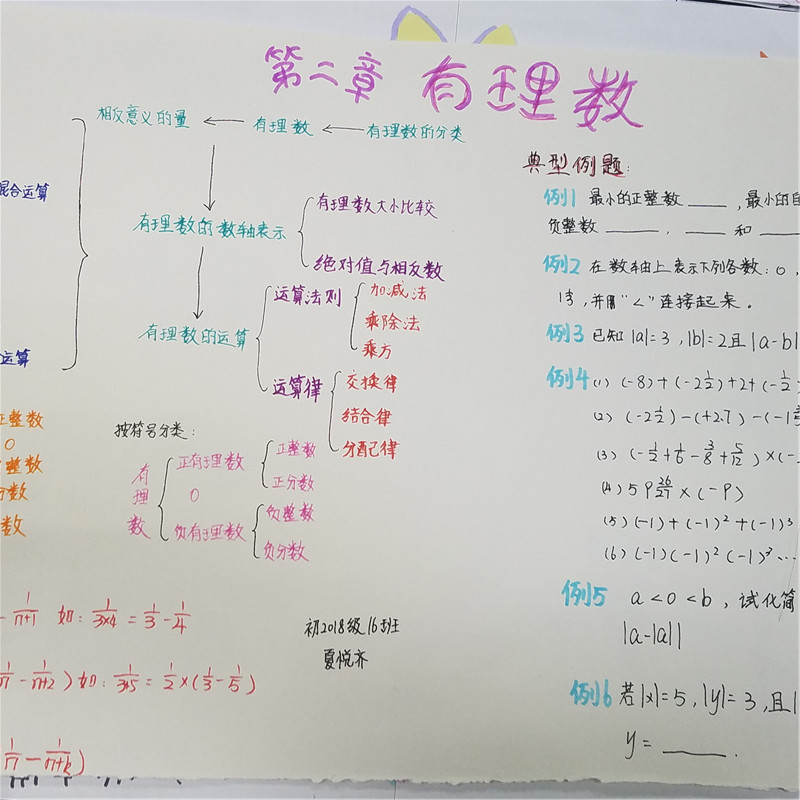 第二章 有理数
混合运算
运算
相反意义的量 ← 有理数 ← 有理数的分类
有理数的数轴表示
有理数大小比较
绝对值与相反数
有理数的运算
运算法则
加减法
乘除法
乘方
运算律
交换律
结合律
分配律
正整数
0
整数
分数
数
按符号分类:
有理数
正有理数
正整数
正分数
0
负有理数
负整数
负分数
- 1/(n+1) 如: 1/(3×4) = 1/3 - 1/4
1/n - 1/(n+2) ) 如: 1/(3×5) = 1/2 × (1/3 - 1/5)
1/n - 1/(n+k) )
初2018级16班
夏悦齐
典型例题:
例1 最小的正整数 ____ ,最小的自
负整数 ____ , ____ 和 ____
例2 在数轴上表示下列各数: 0 ,
并用“<”连接起来。
例3 已知 |a|=3 , |b|=2 且 |a-b|
例4 (1) (-8)+(-2 1/2)+2+(-1/2
(2) (-2 1/2)-(+2.7)-(-1
(3) (-1/2+1/6-3/8+5/12)×(-
(4) 59 26/27 ×(-9)
(5) (-1)+(-1)²+(-1)³
(6) (-1)(-1)²(-1)³…
例5 a<0<b , 试化简
|a-|a||
例6 若|x|=5 , |y|=3 ,且|
y= ____ .